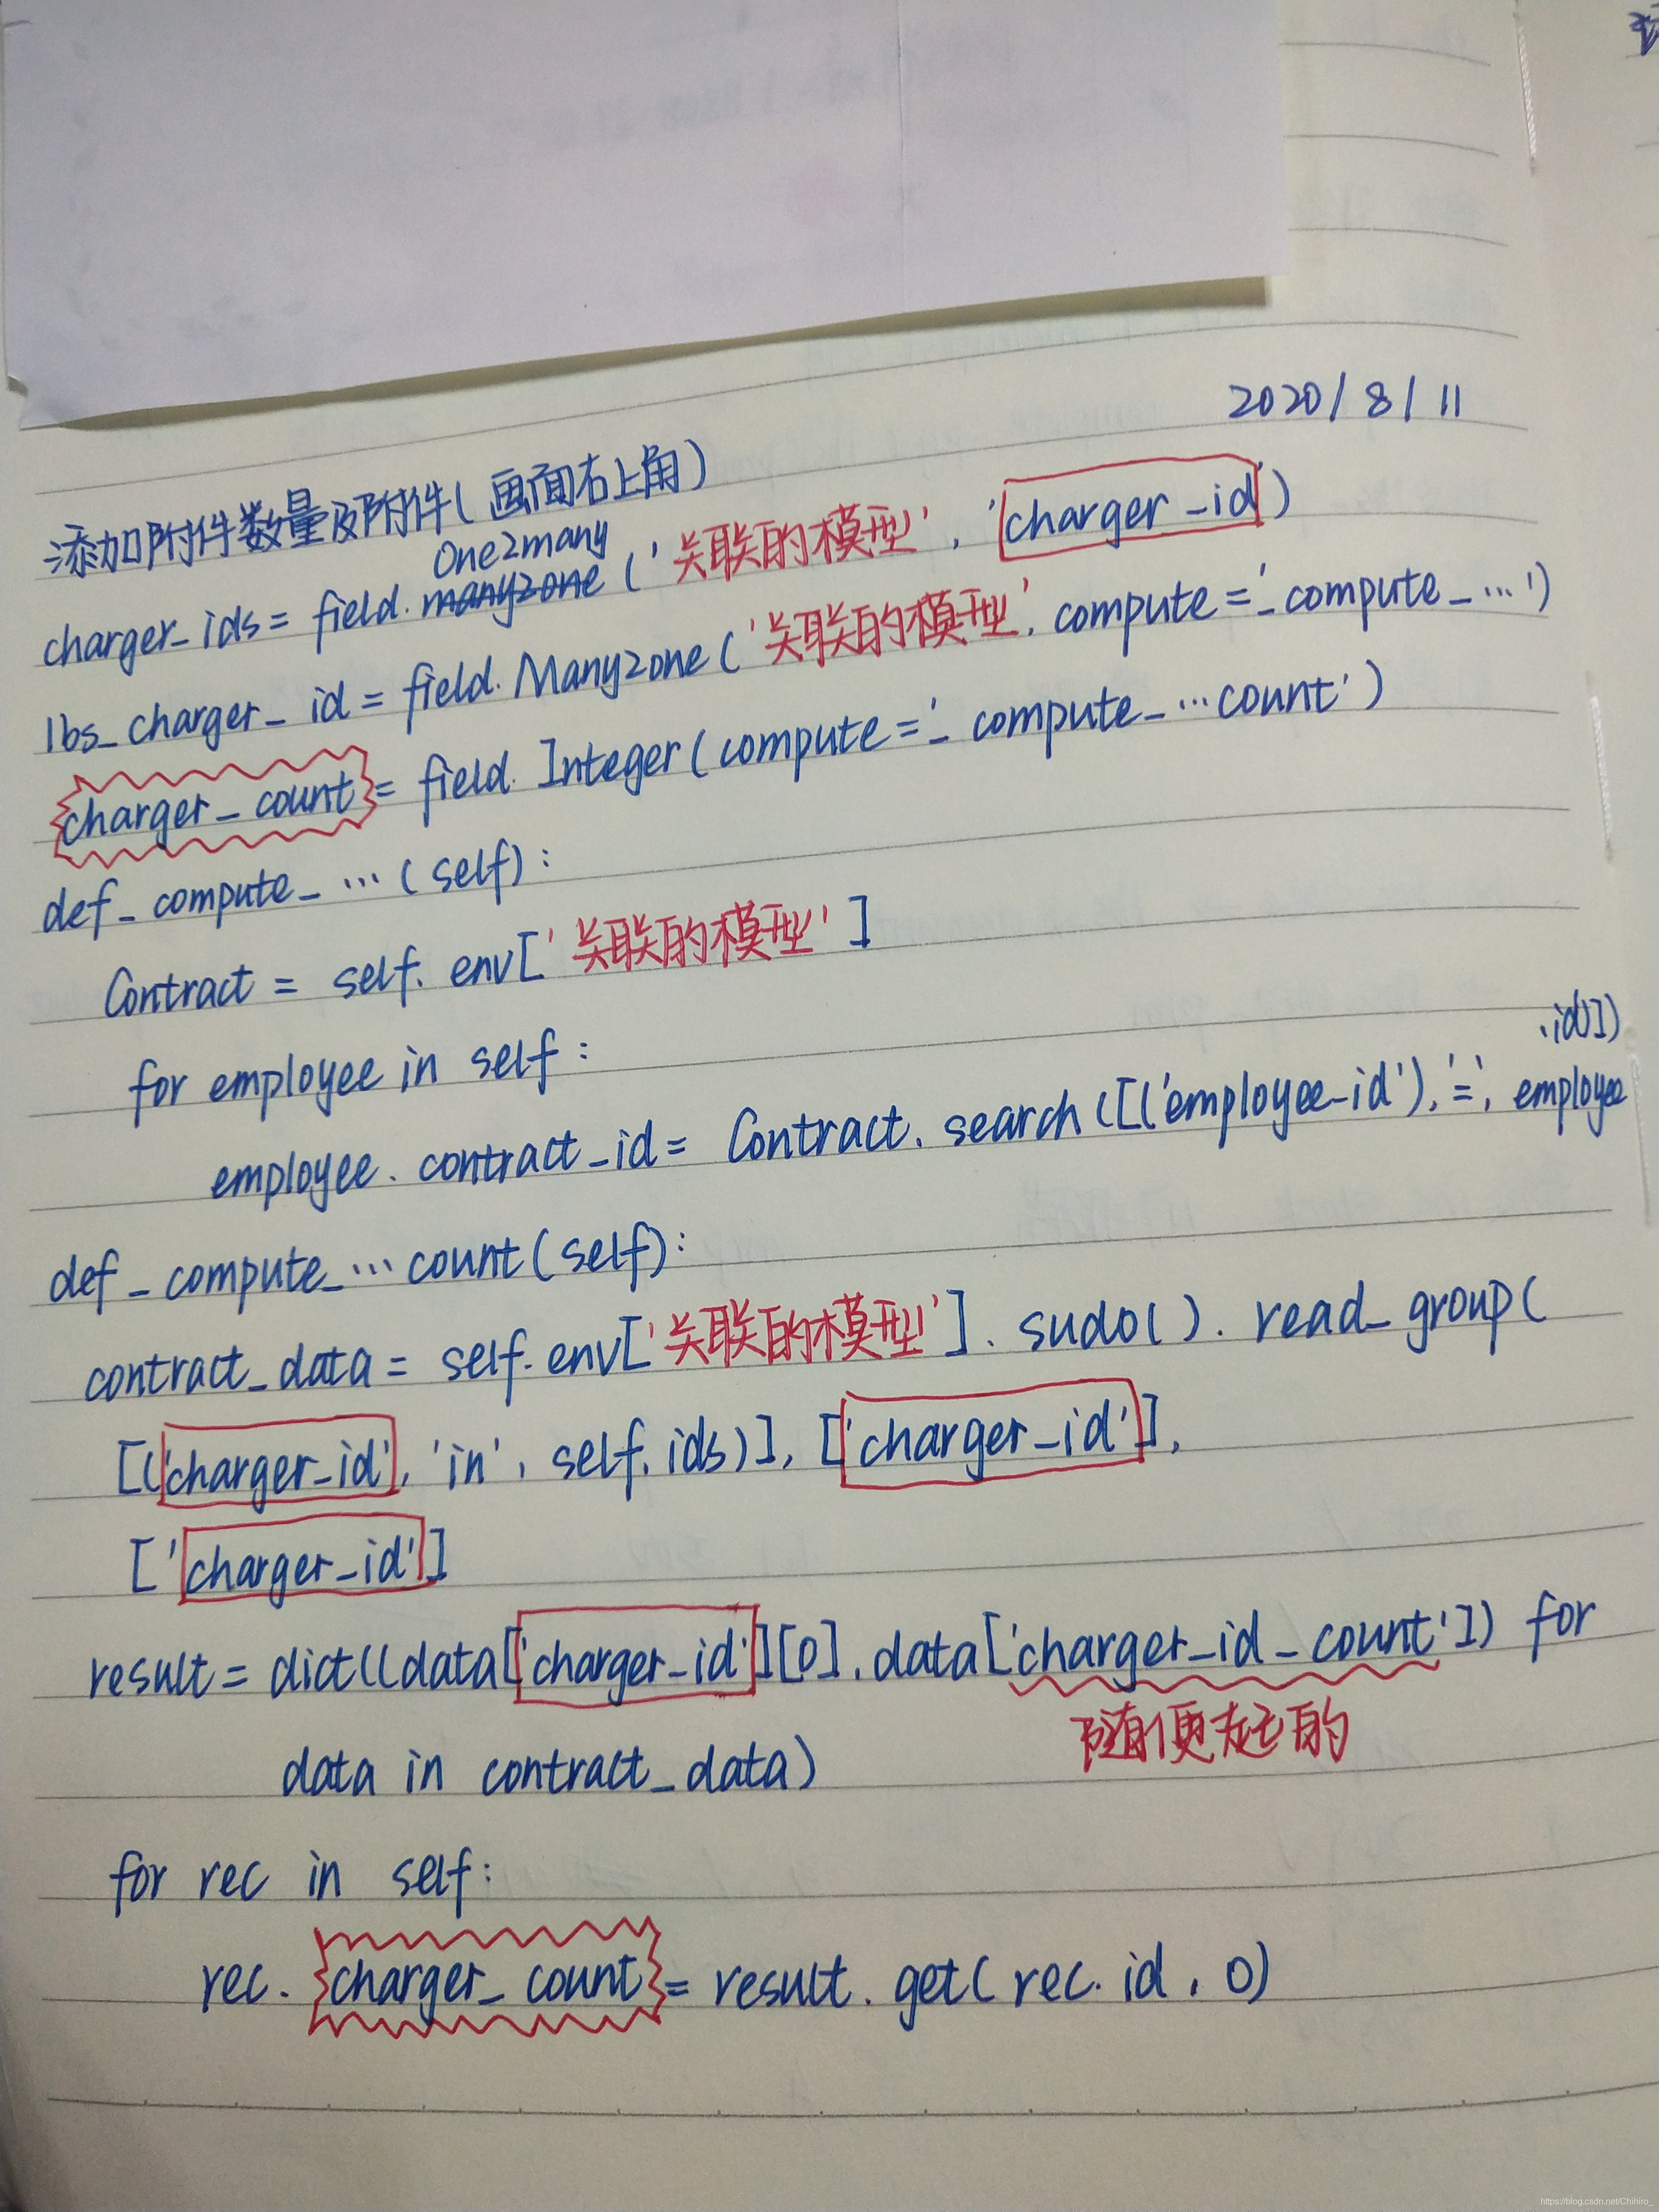 2020/8/11
添加附件数量及附件(画面右上角)
One2many
charger_ids = field.many2one('关联的模型', 'charger_id')
lbs_charger_id = field.Many2one('关联的模型', compute='_compute_...')
charger_count = field.Integer(compute='_compute_...count')
def_compute_...(self):
Contract = self.env['关联的模型']
for employee in self:
.id)])
employee.contract_id = Contract.search([('employee_id'),'=', employee
def_compute_...count(self):
contract_data = self.env['关联的模型'].sudo().read_group(
[('charger_id', 'in', self.ids)], ['charger_id'],
['charger_id']
result = dict((data['charger_id'][0], data['charger_id_count']) for
随便起的
data in contract_data)
for rec in self:
rec.charger_count = result.get(rec.id, 0)
https://blog.csdn.net/Chihiro_